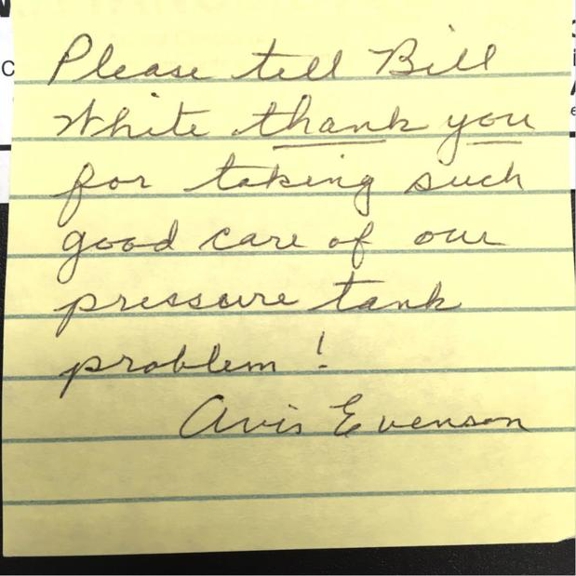 Please tell Bill
White thank you
for taking such
good care of our
pressure tank
problem!
Avis Evenson